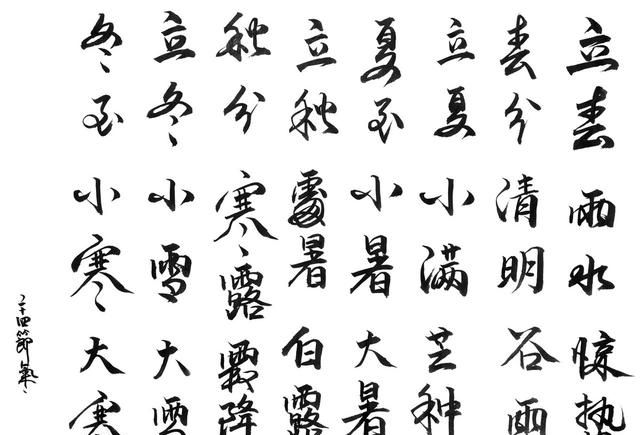 立春雨水惊蛰
春分清明谷雨
立夏小满芒种
夏至小暑大暑
立秋處暑白露
秋分寒露霜降
立冬小雪大雪
冬至小寒大寒
二十四節氣